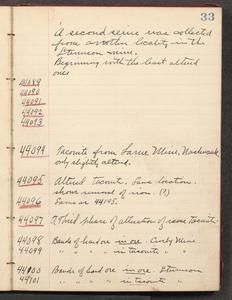 33
A second series was collected
from another locality in the
Stevenson mine.
Beginning with the least altered
ones
44089
44090
44091
44092
44093
44094 Taconite from Larue Mine, Nashwauk
only slightly altered.
44095 Altered taconite. Same location.
shows removal of iron. (?)
44096 Same as 44095.
44097 A third phase of alteration of same taconite
44098 Bands of hard ore in ore. Crosby Mine
44099 " " " " in taconite " "
44100 Bands of hard ore in ore. Stevenson
44101 " " " " in taconite " "